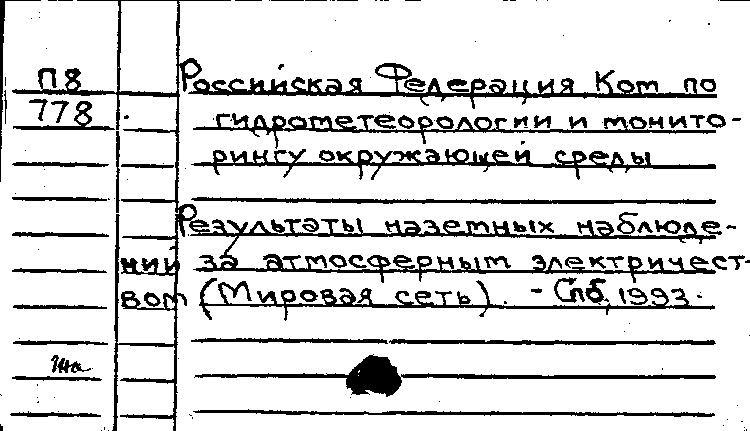 П8 Российская Федерация Ком по
778 гидрометеорологии и монито-
рингу окружающей среды
Результаты наземных наблюде-
ний за атмосферным электричест-
вом (Мировая сеть). - Спб, 1993.